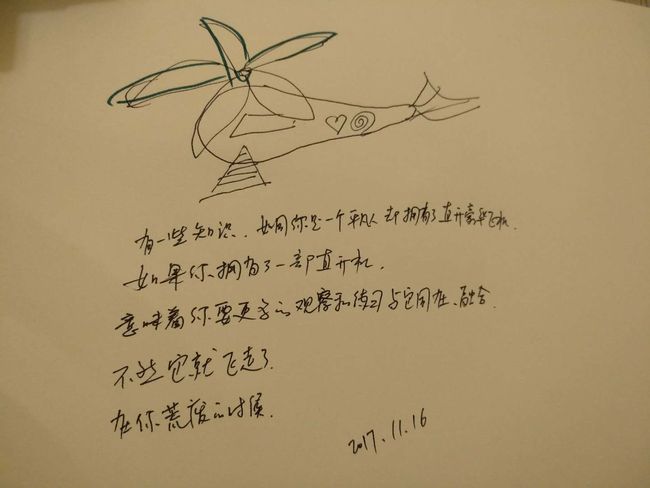 有一些知识、如同你是一个平凡人却拥有了直升豪华飞机.
如果你拥有了一部直升机.
意味着你要更多的观察和练习与它同在、融合
不然它就飞走了.
在你荒废的时候.
2017.11.16